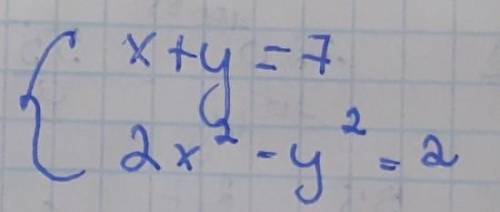 x + y = 7
2x² - y² = 2